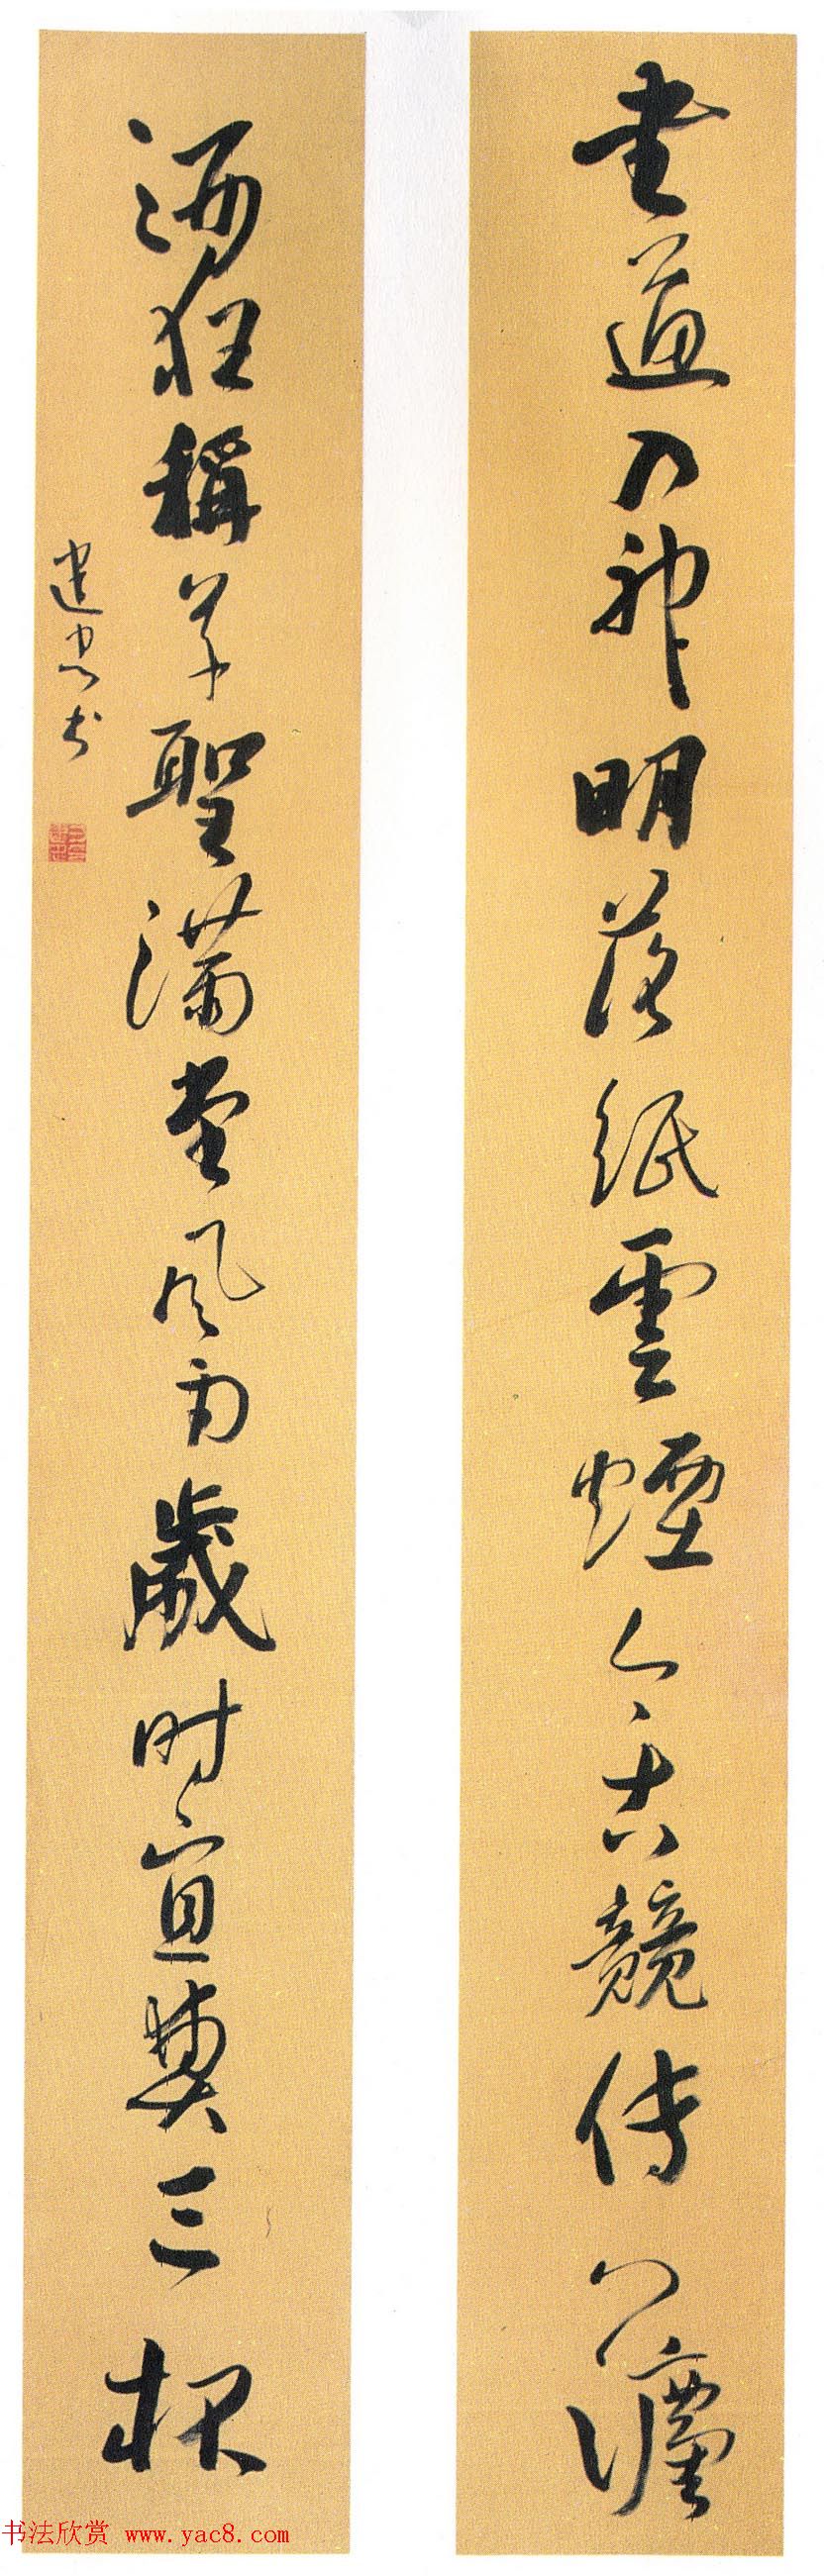 書道入神明落紙雲煙今古競傳八灋
酒狂稱草聖滿堂風雨歲時宜奠三杯
建忠书
书法欣赏 www.yac8.com